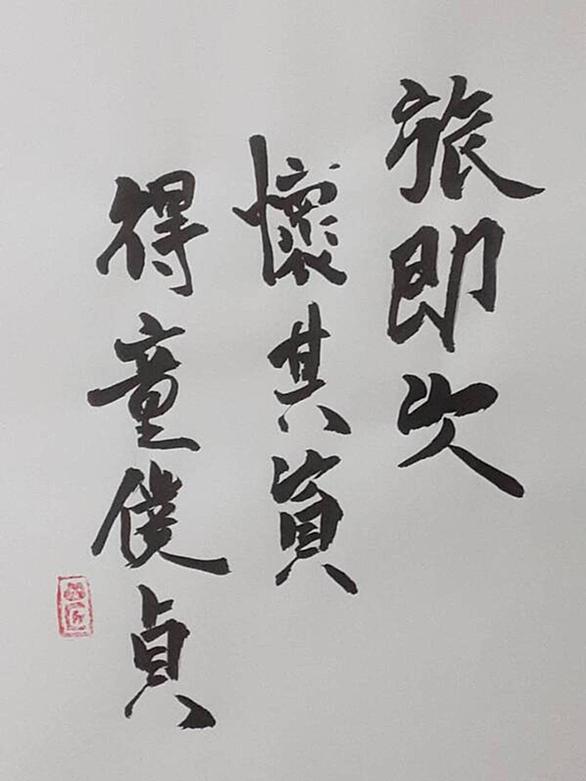 旅即次
懷其資
得童僕貞